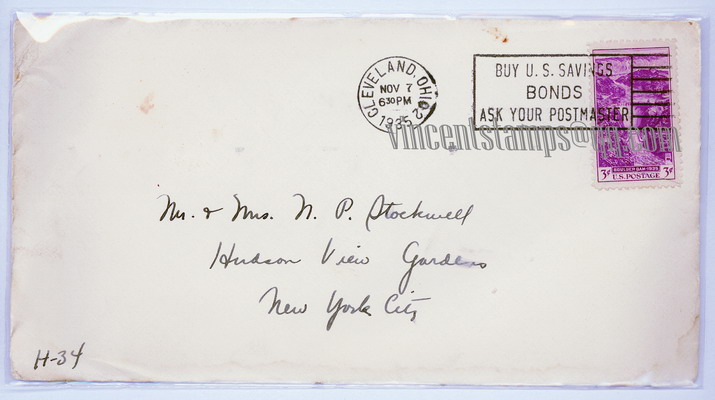 CLEVELAND, OHIO
NOV 7
630PM
1935
BUY U.S. SAVINGS
BONDS
ASK YOUR POSTMASTER
vincentstamps@qq.com
BOULDER DAM 1935
3¢ U.S. POSTAGE 3¢
Mr. & Mrs. N. P. Stockwell
Hudson View Gardens
New York City
H-34